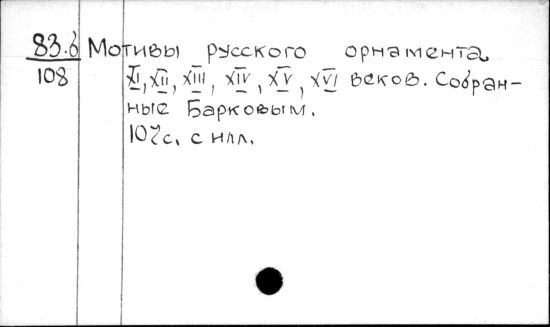 83.б Мотивы русского орнамента
108 XI, XII, XIII, XIV, XV, XVI веков. Собран-
ные Барковым.
107с. с илл.